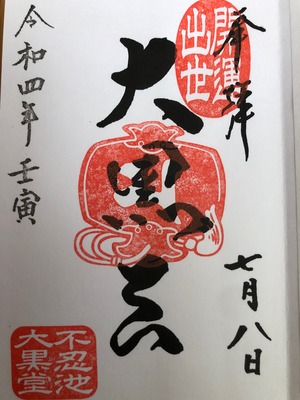 奉拝
開運
出世
大黒天
七月八日
令和四年 壬寅
不忍池
大黒堂